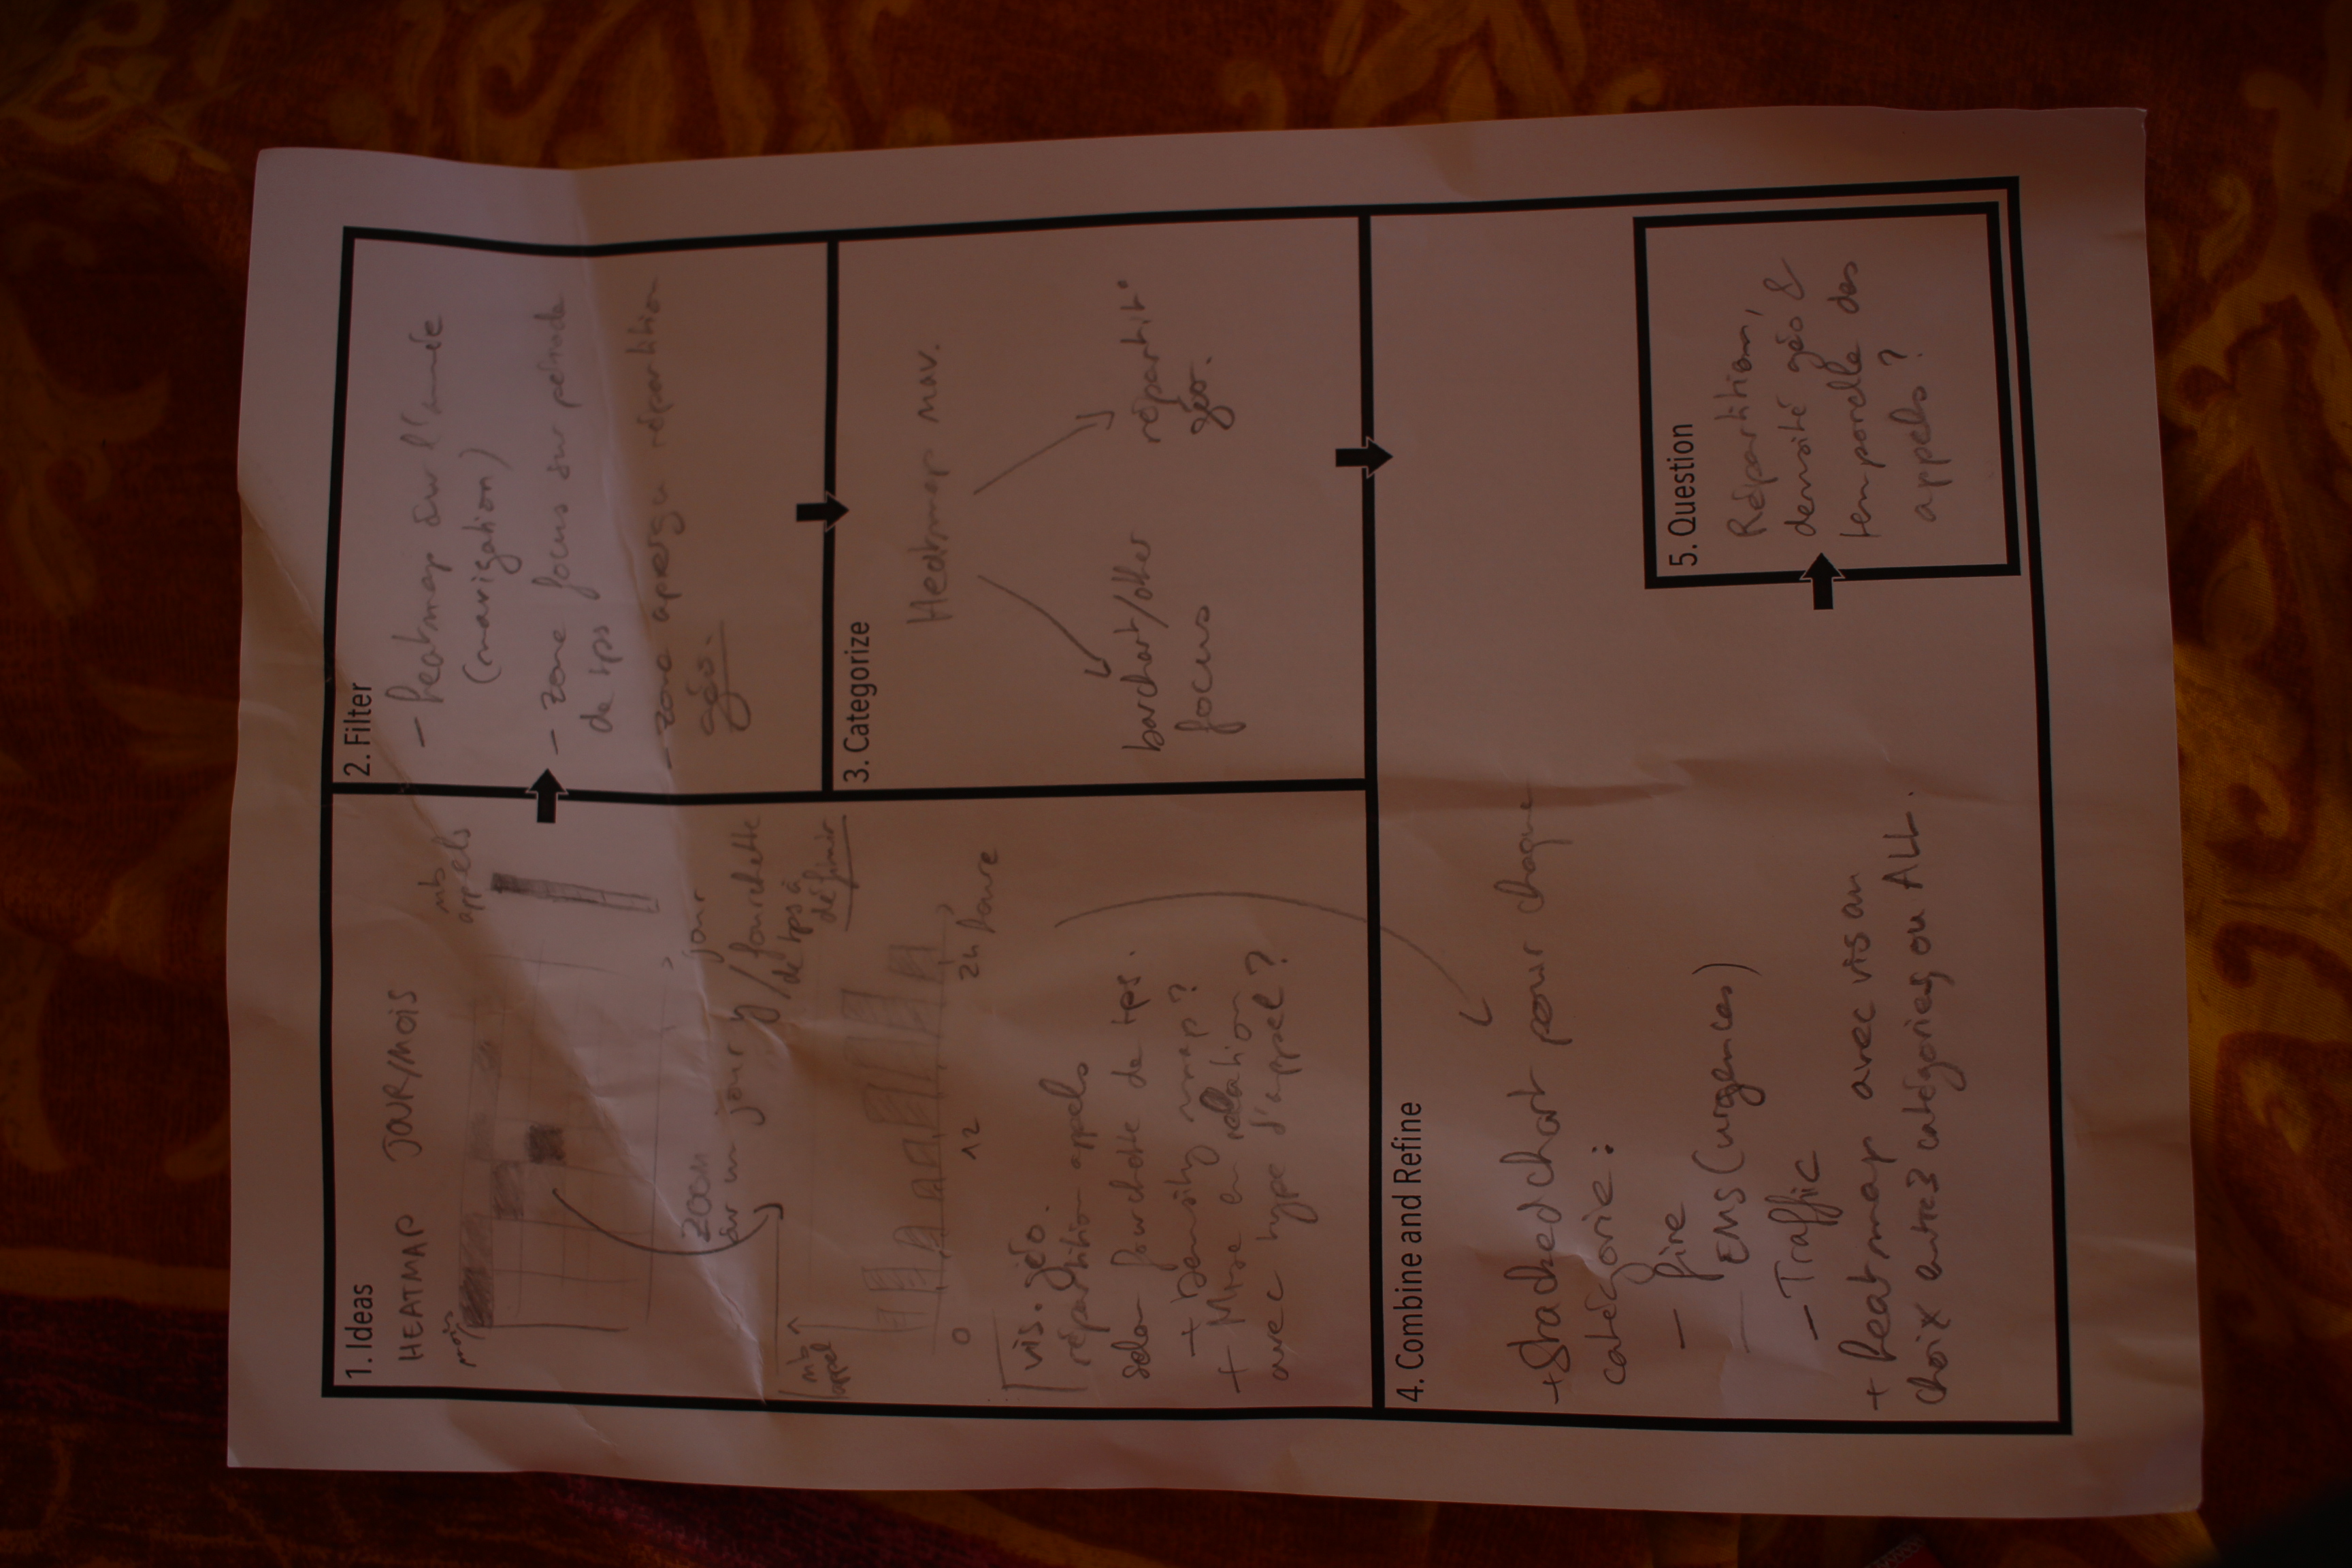 1. Ideas
HEATMAP JOUR/MOIS
nb
appels
mois
jour
zoom
sur un jour / fourchette
de tps à
définir
nb
appel
0
12
24
heure
vis. géo.
répartition appels
selon fourchette de tps.
+ Density map?
+ Mise en relation
avec type d'appel?
2. Filter
- heatmap sur l'année
(navigation)
- zone focus sur période
de tps
- zone aperçu répartition
géo.
3. Categorize
Heatmap nav.
barchart/other
focus
répartit°
géo.
4. Combine and Refine
+ Stacked chart pour chaque
catégorie:
- fire
- EMS (urgences)
- Traffic
+ heatmap avec vis an
choix entre 3 catégories ou ALL.
5. Question
Répartition,
densité géo &
temporelle des
appels?